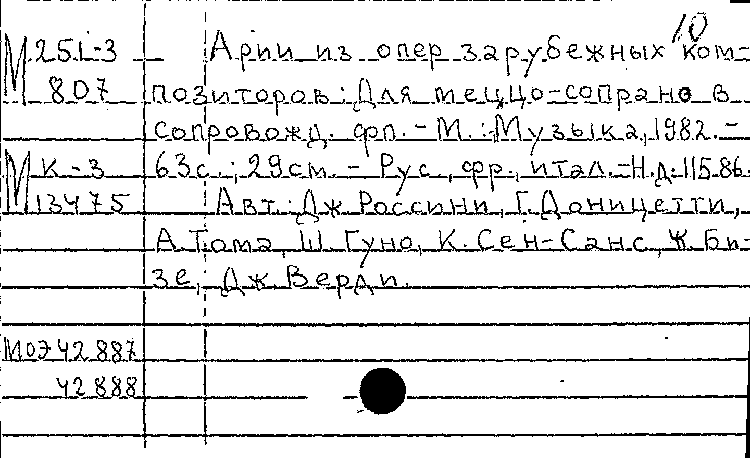 10
М 251-3 Арии из опер зарубежных ком-
807 позиторов: Для меццо-сопрано в
сопровожд. фп. - М.: Музыка, 1982. -
М К-3 63с.; 29см. - Рус., фр., итал. - Н.д. 11586.
13475 Авт.: Дж. Россини, Г. Доницетти,
А. Тома, Ш. Гуно, К. Сен-Санс, Ж. Би-
зе, Дж. Верди.
МОЭ 42 887
42 888